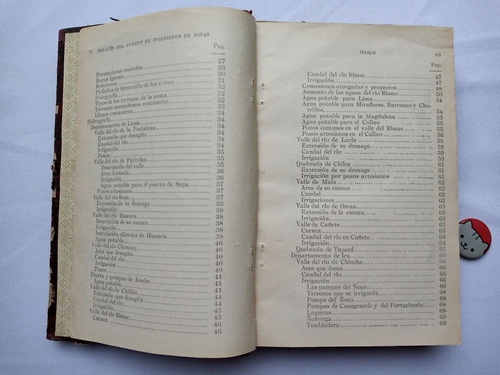 VI BOLETÍN DEL CUERPO DE INGENIEROS DE MINAS
Pág.
Formaciones recientes 27
Rocas ígneas 29
Relaciones 30
Fisiografía 31
Tipos de los terrenos de la costa 32
Llanos costaneros
Hidrografía
Departamento de Lima 34
Valle del río de la Fortaleza 34
Extensión que desagüa 34
Caudal del río
Irrigación
Pozos
Valle del río de Pativilca
Descripción del valle
Area drenada
Irrigación
Agua potable para el puerto de Supe
Pozos artesianos
Valle del río Supe
Extensión de la cuenca
Irrigación
Valle del río Huaura
Descripción de su cuenca
Irrigación
Instalación eléctrica de Huaura
Agua potable
Valle del río Chancay 40
Area que desagüa 40
Caudal del río
Irrigación
Pozos
Puerto y pampas de Ancón
Agua potable
Valle del río de Chillón
Extensión que desagüa
Caudal del río
Irrigación
Valle del río Rímac 46
Cuenca 46
INDICE VII
Pág.
Caudal del río Rímac 47
Irrigación 47
Concesiones otorgadas y proyectos 48
Aumento de las aguas del río Rímac 54
Agua potable para Lima
Agua potable para Miraflores, Barranco y Chorrillos
Agua potable para la Magdalena
Agua potable para el Callao
Pozos comunes en el valle del Rímac
Pozos artesianos en el Callao
Valle del río de Lurín
Extensión de su drenage
Caudal del río
Irrigación
Quebrada de Chilca
Extensión de su drenage
Irrigación por pozos artesianos
Valle de Mala
Area de su cuenca
Caudal
Irrigaciones
Valle del río de Omas
Extensión de la cuenca
Irrigación
Valle de Cañete
Cuenca
Caudal del río en Cañete
Irrigación
Quebrada de Topará
Departamento de Ica
Valle del río de Chincha
Area que drena
Caudal del río
Irrigación
Las pampas del Ñoco
Terrenos que se irrigarán
Pampa del Ñoco
Pampas de Casagrande y del Portachuelo
Lagunas